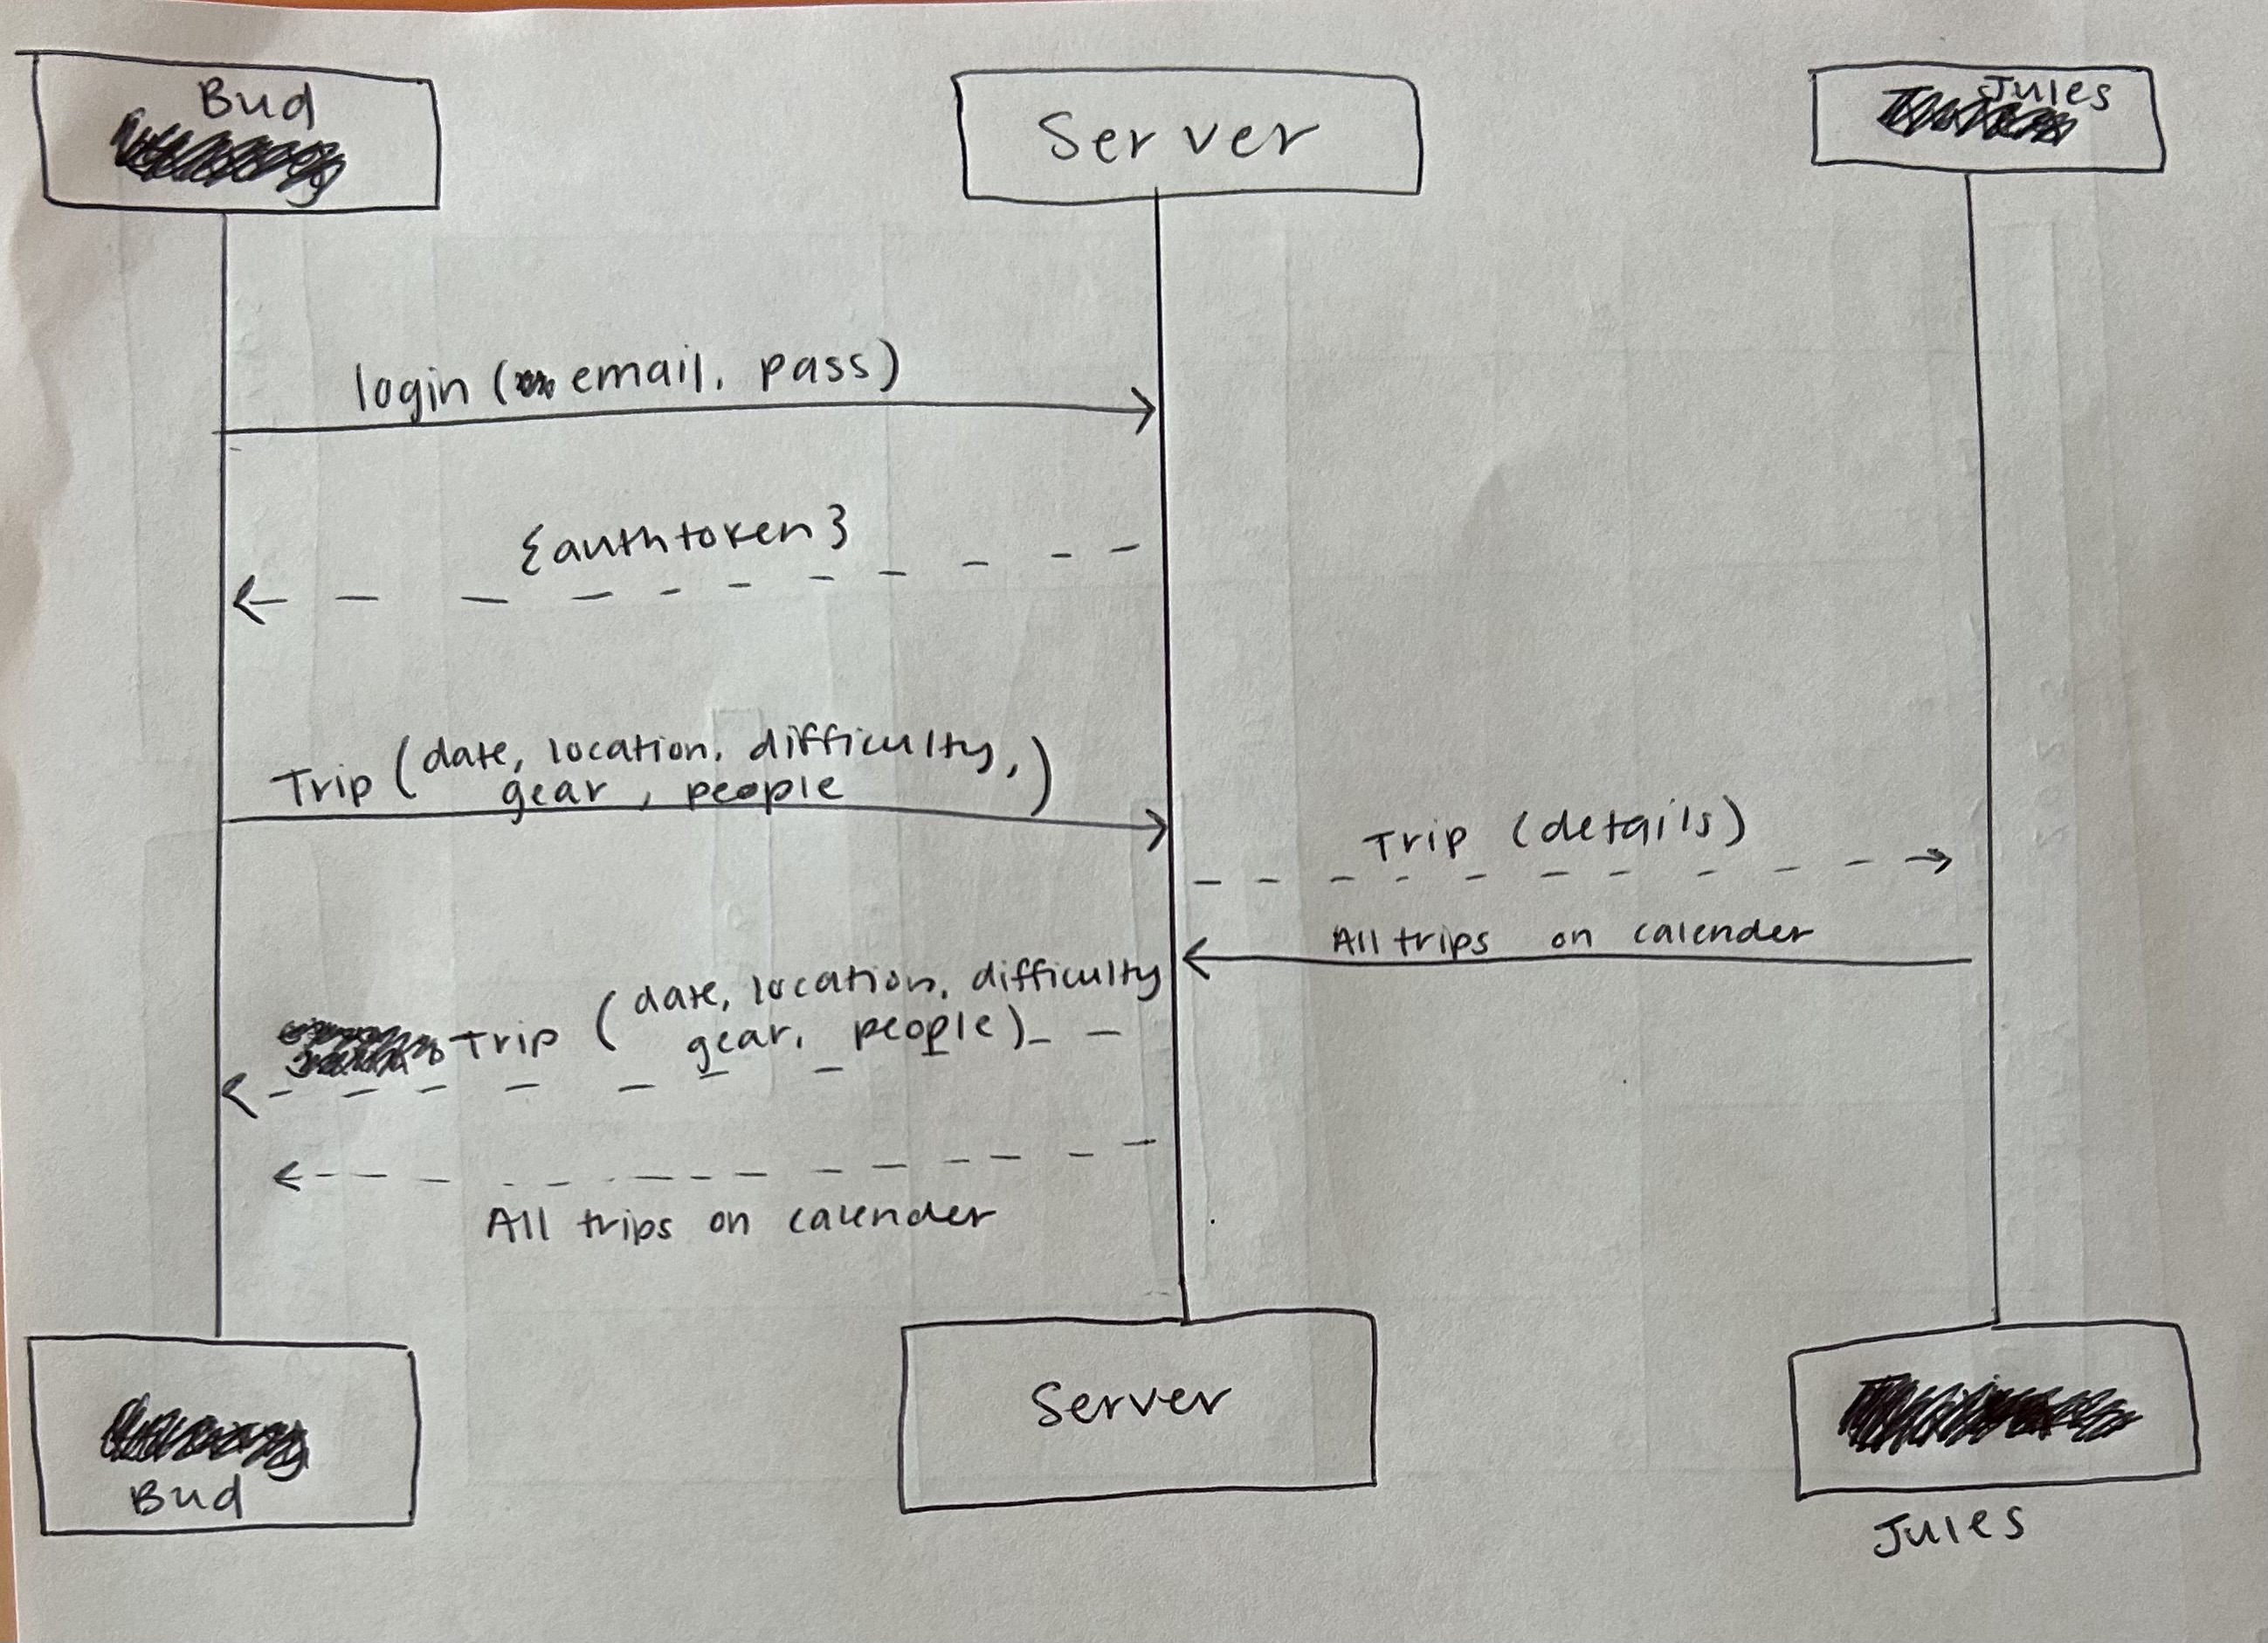 Bud
Server
Jules
login (email, pass)
{authtoken}
Trip (date, location, difficulty,
gear, people)
Trip (details)
All trips on calender
Trip (date, location, difficulty
gear, people)
All trips on calender
Bud
Server
Jules